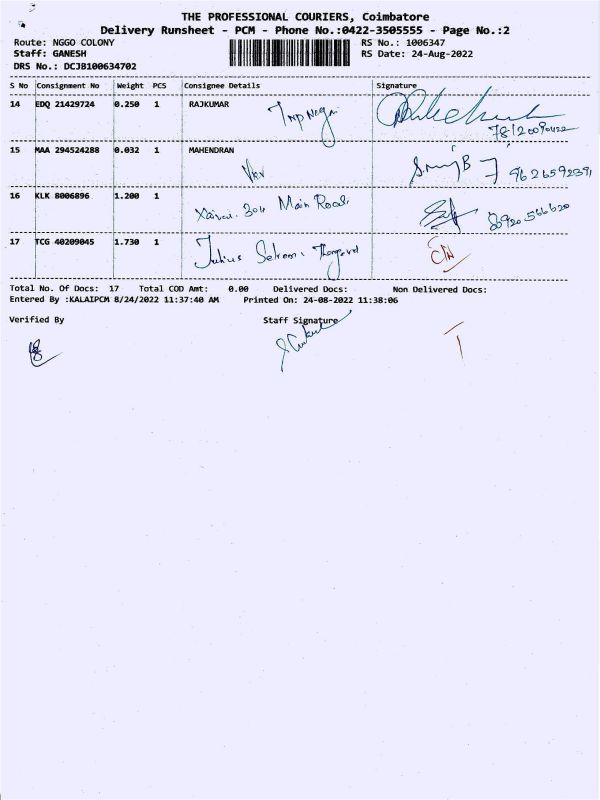 THE PROFESSIONAL COURIERS, Coimbatore
Delivery Runsheet - PCM - Phone No.:0422-3505555 - Page No.:2
Route: NGGO COLONY
RS No.: 1006347
Staff: GANESH
RS Date: 24-Aug-2022
DRS No.: DCJB100634702
S No Consignment No Weight PCS Consignee Details Signature
14 EDQ 21429724 0.250 1 RAJKUMAR
15 MAA 294524288 0.032 1 MAHENDRAN
9626592391
16 KLK 8006896 1.200 1 Xavier. 304 Main Road.
8920566620
17 TCG 40209045 1.730 1 Julius
Total No. Of Docs: 17 Total COD Amt: 0.00 Delivered Docs: Non Delivered Docs:
Entered By :KALAIPCM 8/24/2022 11:37:40 AM Printed On: 24-08-2022 11:38:06
Verified By Staff Signature